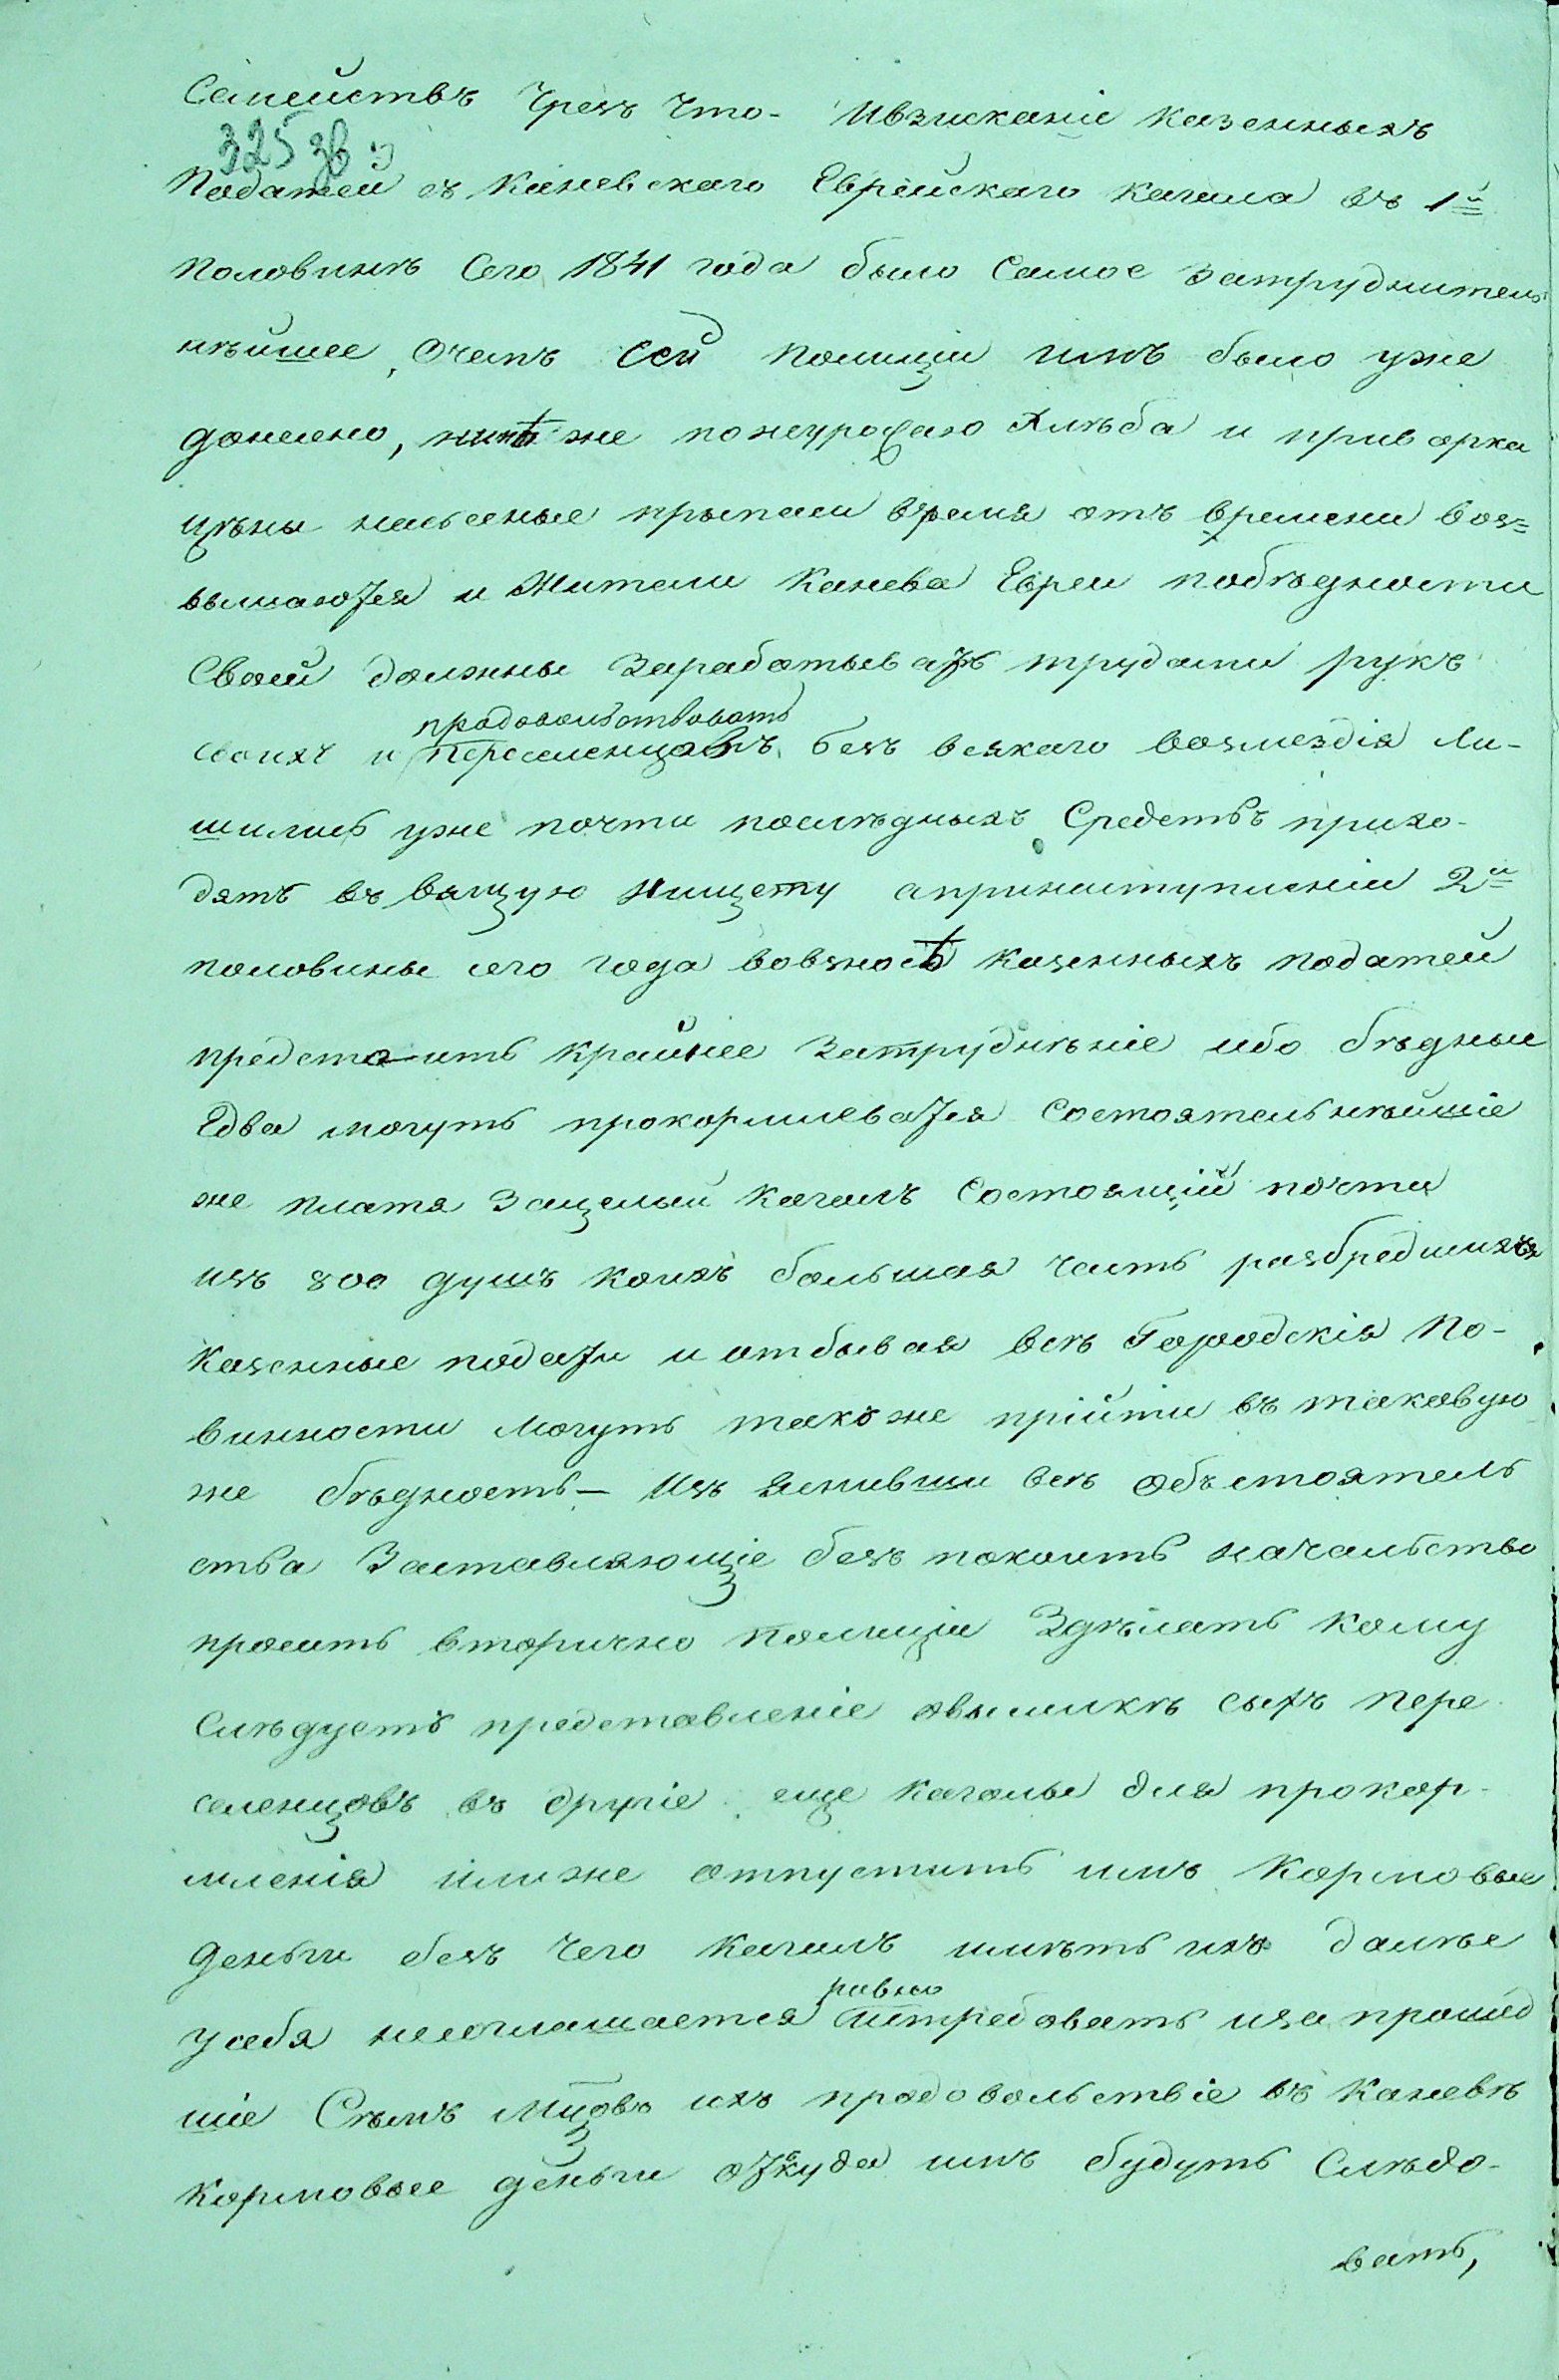 Семействъ Чрезъ Что- Ивзисканіе казенныхъ
325 зв
Податей съ Каневскаго Еврейскаго Кагала въ 1й
половинѣ Сего 1841 года было Самое Затруднитель
нѣйшее, Очемъ сей полиціи имъ было уже
донесено, нинѣ же понеурожаю Хлѣба и приварка
цѣны насъесные прыпасы время отъ времени воз=
вышаются и Жители Канева Евреи побѣдности
Своей должны Зарабатывать трудами рукъ
продовольствовать
своихъ и переселенцовъ безъ всякаго возмездія Ли-
шились уже почти послѣдныхъ Средствъ прихо-
дятъ въ вящую нищету априниступленіи 2й
половины сего года вовзносѣ казенныхъ податей
предстоитъ крайнее Затруднѣніе ибо бѣдные
Едва могутъ прокормлеватся Состоятельнѣйшіе
же платя Зацелый Кагалъ Состоящій почти
изъ 800 душъ коихъ большая часть разбредшихся
Казенные подати и отбывая всѣ Городскія По-
винности Могутъ также прійти въ таковую
же бѣдность- Изъ яснивши всѣ объстоятель
ства Заставляющіе безъ покоить начальство
просить вторично полицію Здѣлать кому
Слѣдуетъ представленіе овысилкѣ сыхъ пере
селенцовъ въ другіе еще кагалы для прокор-
мленія илиже отпустить имъ Кормовые
деньги безъ чего Кагалъ имѣть ихъ далѣе
равно
у себя несоглашается итребовать иза прошед
шіе Сѣмъ Мцовъ ихъ продовольствіе въ Каневѣ
кормовые деньги откуда имъ будутъ Слѣдо-
вать,